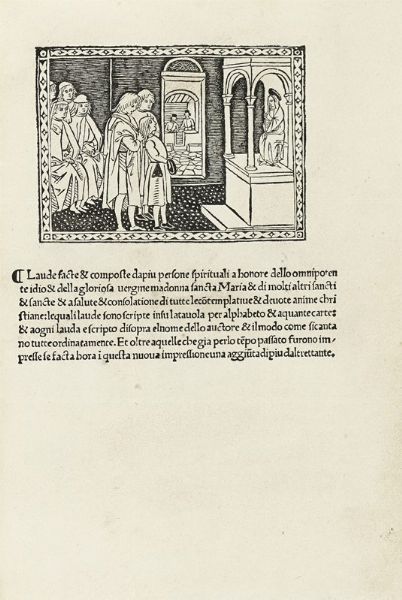 ¶ Laude facte & composte dapiu persone spirituali a honore dello omnipoten
te idio & della gloriosa uergine madonna sancta Maria & di molti altri sancti
& sancte & a salute & consolatione di tutte le cōtemplatiue & deuote anime chri
stiane: lequali laude sono scripte insu latauola per alphabeto & aquante carte:
& aogni lauda e scripto disopra elnome dello auctore & ilmodo come sicanta
no tutte ordinatamente. Et oltre aquelle che gia perlo tēpo passato furono im⸗
presse se facta hora ī questa nuoua impressione una aggiūta dipiu daltrettante.